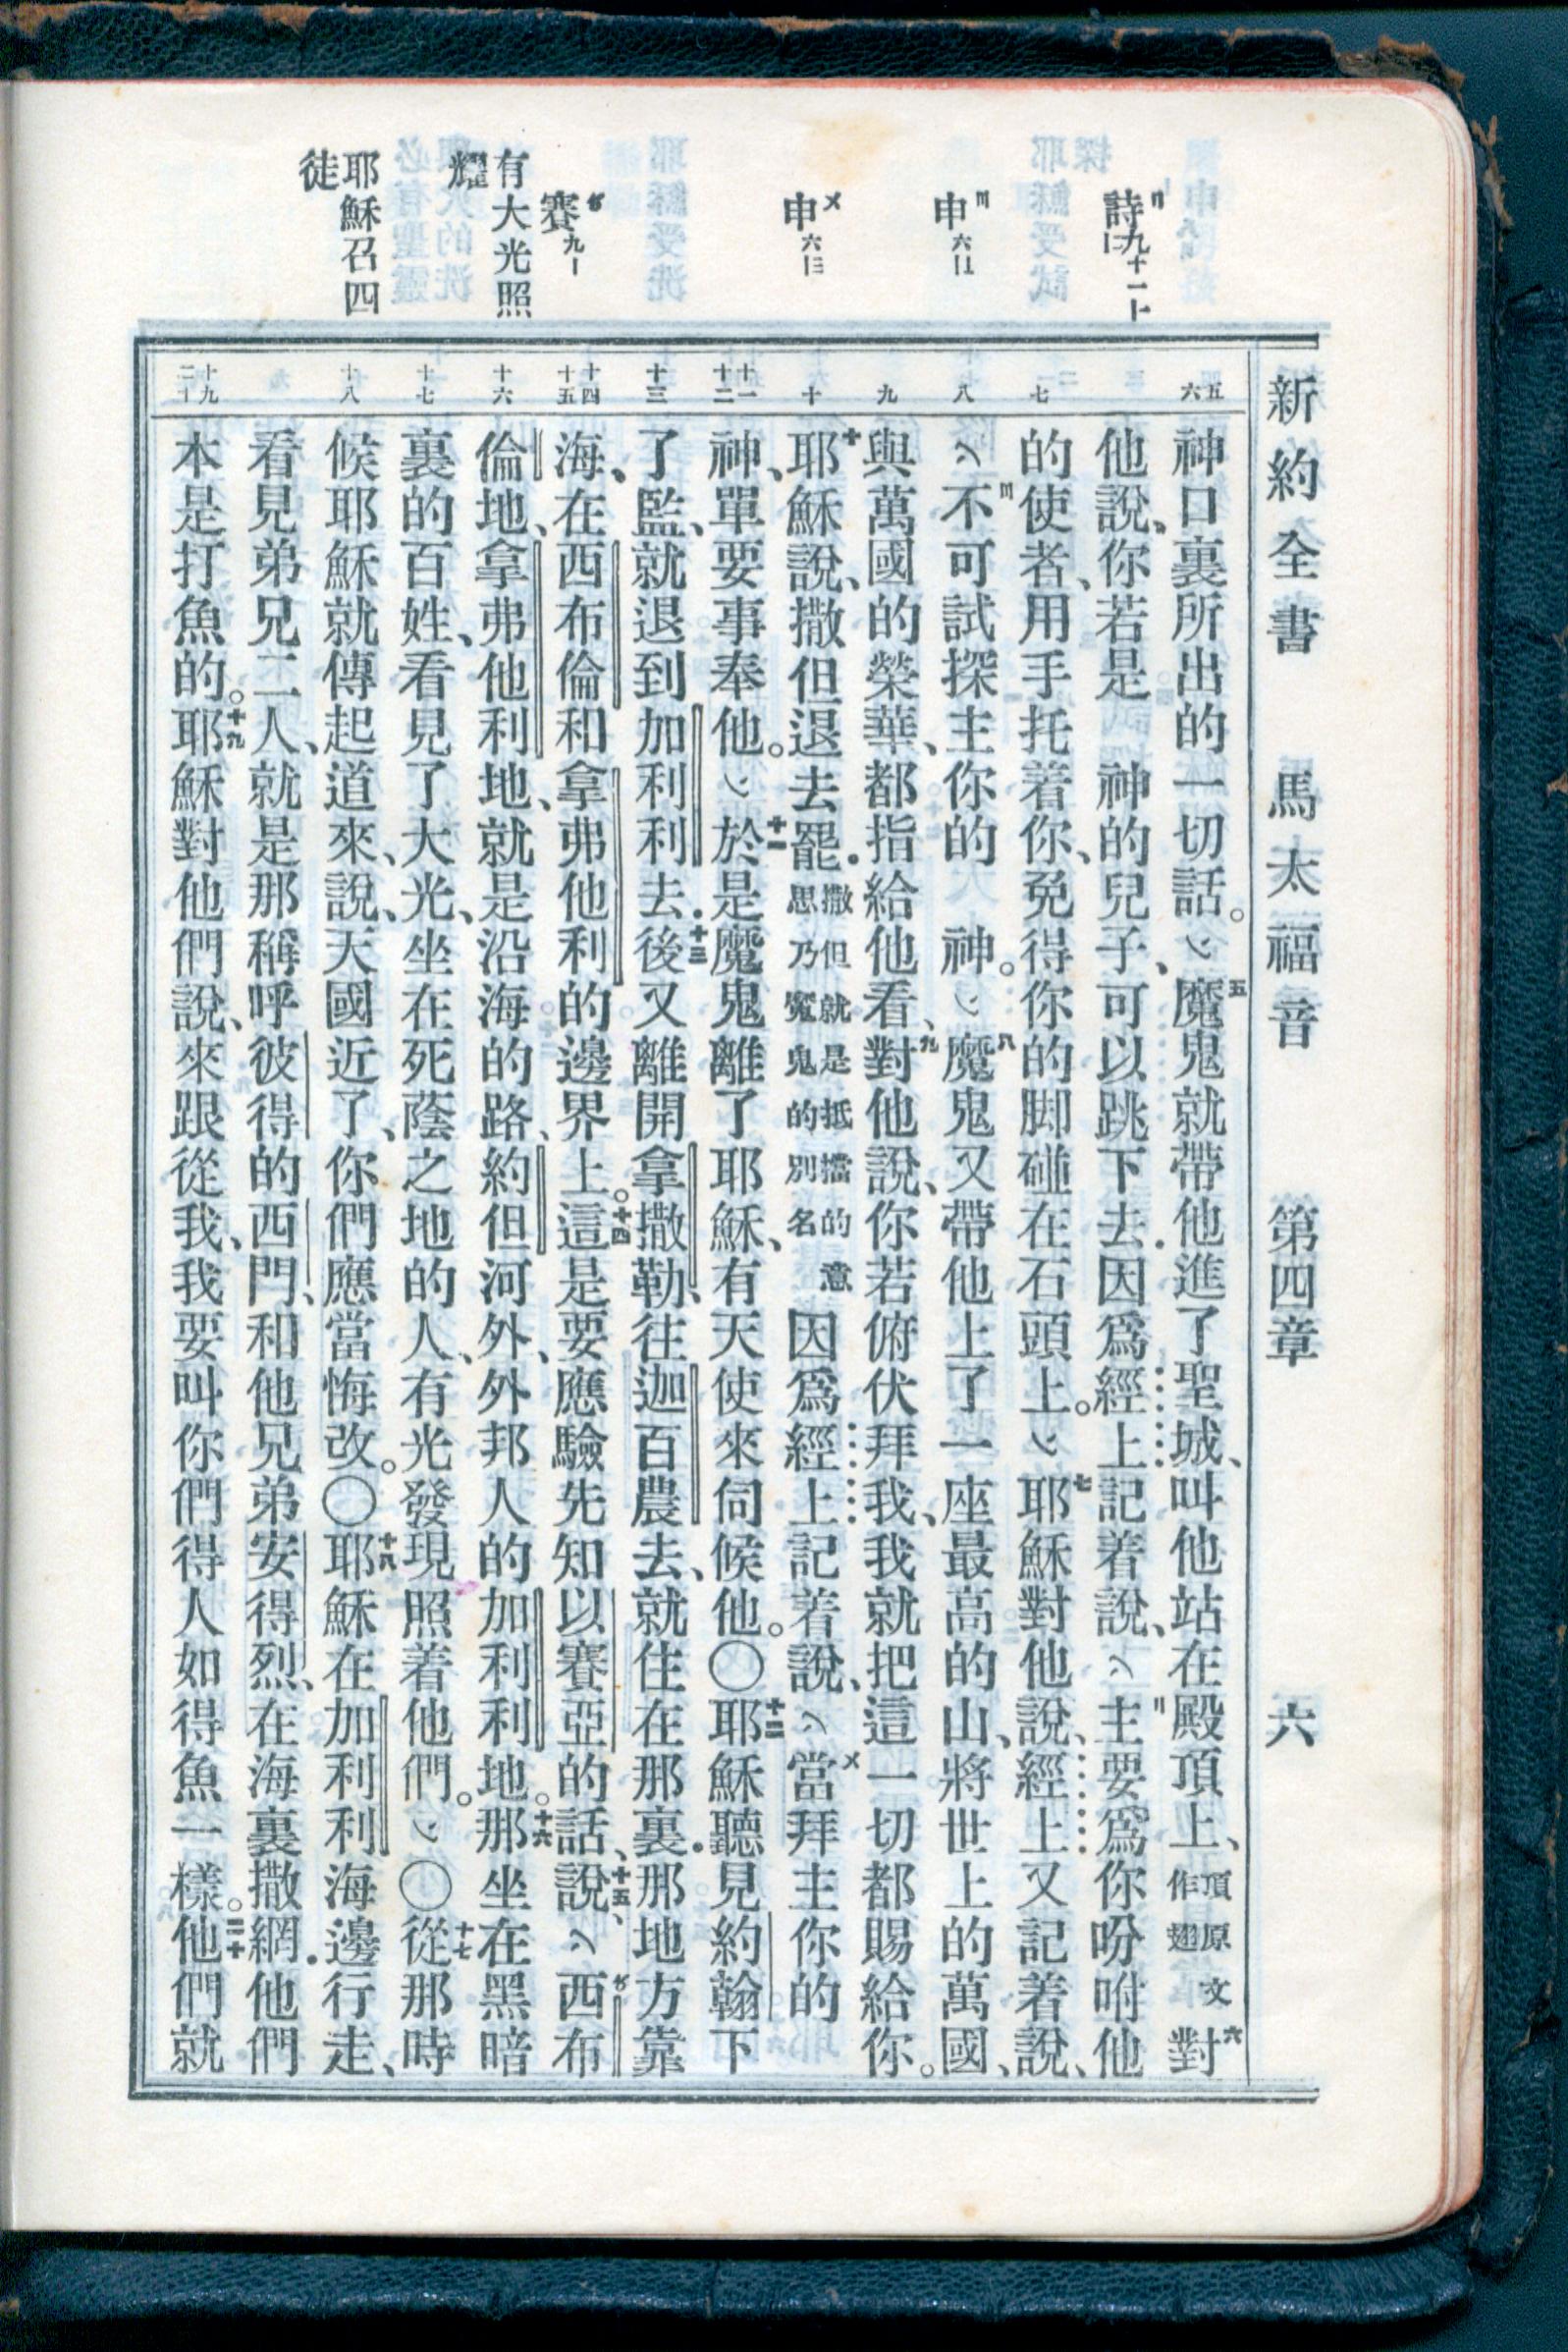 新約全書 馬太福音 第四章 六
詩九十一
申六
申六
賽九
有大光照
耀
耶穌召四
徒
五六 七 八 九 十 十一十二 十三 十四十五 十六 十七 十八 十九二十
神口裏所出的一切話。五魔鬼就帶他進了聖城、叫他站在殿頂上、頂原文作翅六對
他說、你若是 神的兒子、可以跳下去．因爲經上記着說、主要爲你吩咐他
的使者、用手托着你、免得你的脚碰在石頭上。七耶穌對他說、經上又記着說、
不可試探主你的 神。八魔鬼又帶他上了一座最高的山、將世上的萬國、
與萬國的榮華、都指給他看、九對他說、你若俯伏拜我、我就把這一切都賜給你。
十耶穌說、撒但退去罷．撒但就是抵擋的意思乃寃鬼的別名因爲經上記着說、當拜主你的
神、單要事奉他。十一於是魔鬼離了耶穌、有天使來伺候他。〇十二耶穌聽見約翰下
了監、就退到加利利去．十三後又離開拿撒勒、往迦百農去、就住在那裏．那地方靠
海、在西布倫和拿弗他利的邊界上。十四這是要應驗先知以賽亞的話、十五說、西布
倫地、拿弗他利地、就是沿海的路、約但河外、外邦人的加利利地。十六那坐在黑暗
裏的百姓、看見了大光、坐在死蔭之地的人、有光發現照着他們。〇十七從那時
候耶穌就傳起道來、說、天國近了、你們應當悔改。〇十八耶穌在加利利海邊行走、
看見弟兄二人、就是那稱呼彼得的西門、和他兄弟安得烈、在海裏撒網．他們
本是打魚的。十九耶穌對他們說、來跟從我、我要叫你們得人如得魚一樣。二十他們就